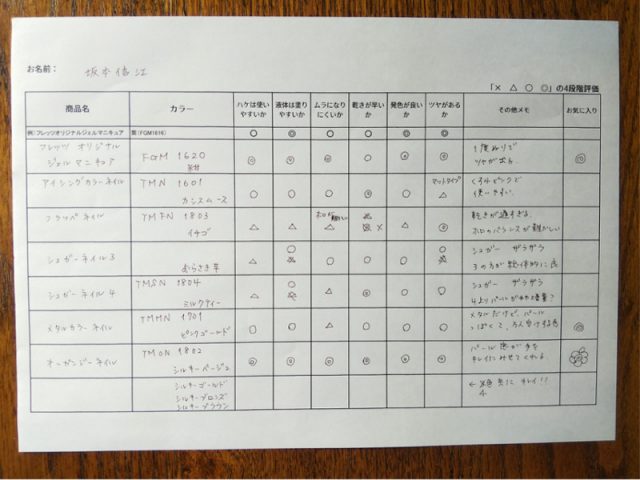 お名前： 坂本 信江
「× △ ○ ◎」の4段階評価
商品名 カラー ハケは使いやすいか 液体は塗りやすいか ムラになりにくいか 乾きが早いか 発色が良いか ツヤがあるか その他メモ お気に入り
例：フレッツオリジナルジェルマニキュア 葉（FGM1616） ○ ◎ ○ ○ ◎ ◎
フレッツ オリジナル ジェルマニキュア FGM 1620 ◎ ◎ ◎ ○ ◎ ◎ 1度ぬりでツヤが出た ◎
アイシングカラーネイル TMN 1601 カシスムース ○ ○ ○ ○ ○ マットタイプ △ くすみピンクで使いやすい
フラッペネイル 1803 イチゴ △ △ △ × △ ○ 乾きが速すぎる
シュガーネイル3 むらさき芋 △ ○ △ ○ ○ シュガー ザラザラ 3の方が
シュガーネイル4 TMSN 1804 ミルクティー △ ○ △ ◎ ○ ○ シュガー ザラザラ
メタルカラーネイル TMMN 1701 ピンクゴールド ○ ○ △ ○ ○ ○ メタルだけど、パールっぽくて、万人受けする色 ◎
オーガンジーネイル TMON 1802 シルキーベージュ ◎ ◎ ◎ ◎ ◎ ◎ パール感が手をキレイにみせてくれる
シルキーゴールド シルキーブロンズ シルキーブラウン キレイ！！